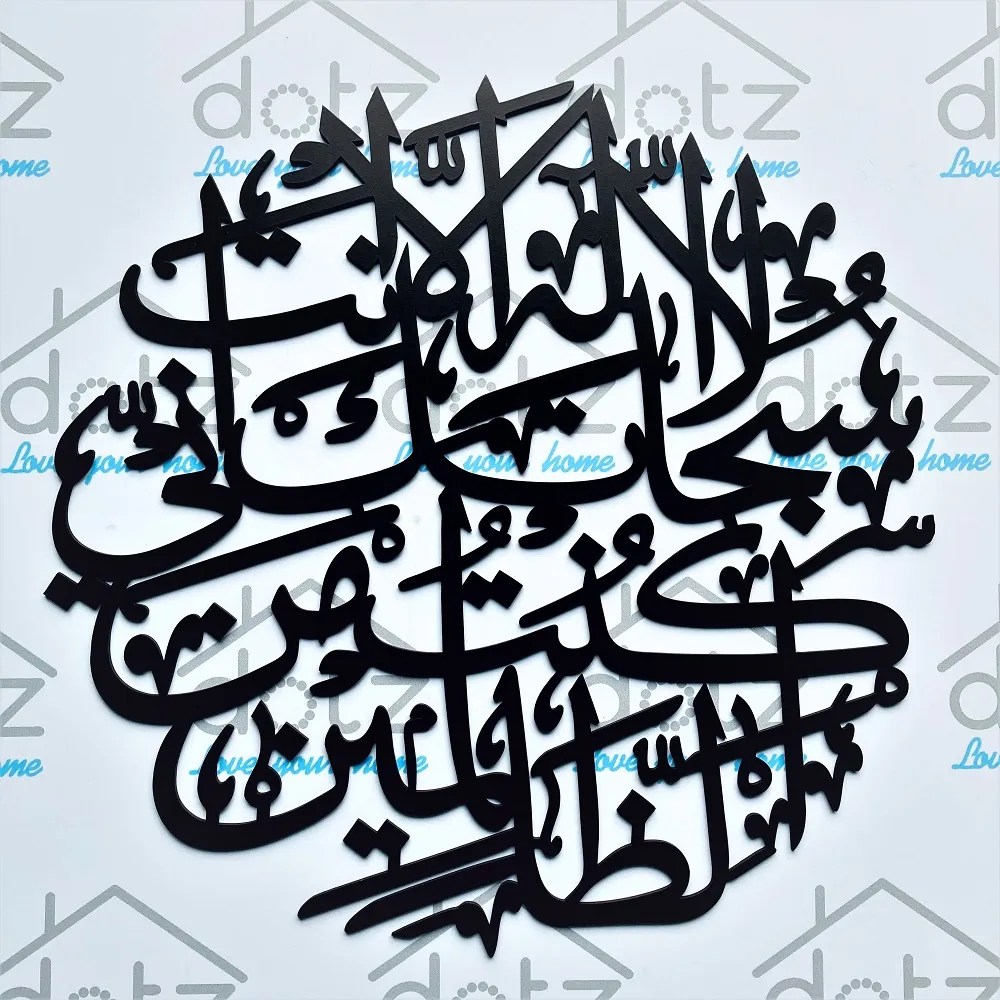 لا إله إلا أنت
سبحانك إني
كنت من
الظالمين
dotz
Love your home